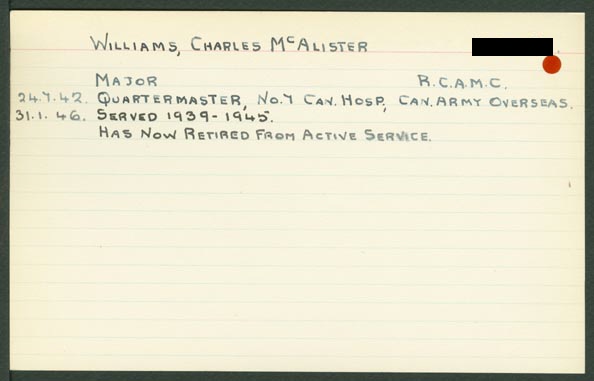 WILLIAMS, CHARLES McALISTER
MAJOR R.C.A.M.C.
24.7.42. QUARTERMASTER, NO.7 CAN. HOSP., CAN. ARMY OVERSEAS.
31.1.46. SERVED 1939-1945.
HAS NOW RETIRED FROM ACTIVE SERVICE.